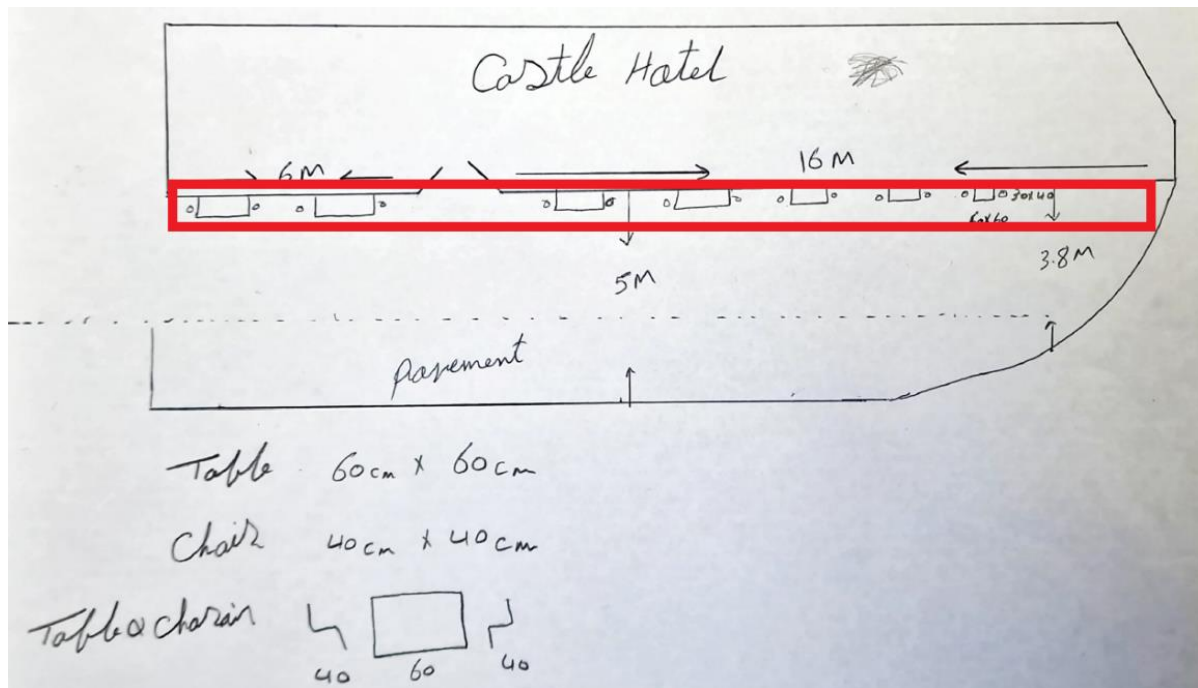 Castle Hotel
6M
16M
30x40
60x60
5M
3.8M
Pavement
Table 60cm x 60cm
Chair 40cm x 40cm
Table &
40 60 40